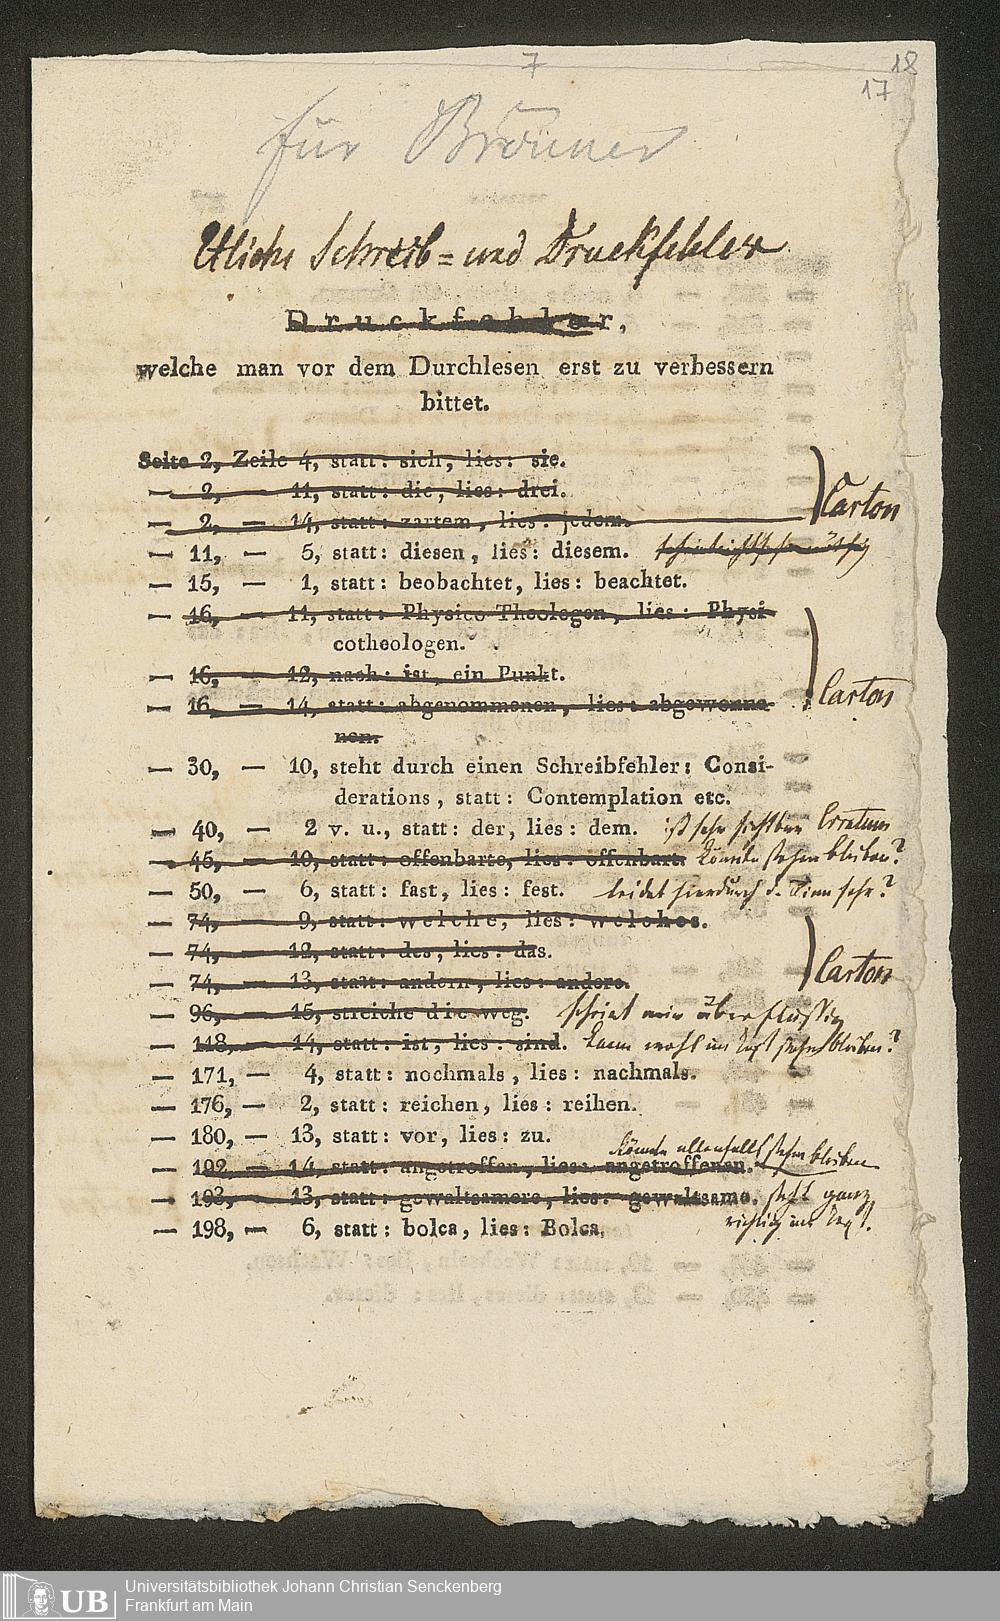 7
18
17
für Brönner
Etliche Schreib- und Druckfehler
Druckfehler,
welche man vor dem Durchlesen erst zu verbessern
bittet.
Seite 2, Zeile 4, statt: sich, lies: sie.
— 2, — 11, statt: die, lies: drei.
— 2, — 14, statt: zartem, lies: jedem. Carton
— 11, — 5, statt: diesen, lies: diesem.
— 15, — 1, statt: beobachtet, lies: beachtet.
— 16, — 11, statt: Physico-Theologen, lies: Physi-
cotheologen.
— 16, — 12, nach: ist, ein Punkt.
— 16, — 14, statt: abgenommenen, lies: abgewonne-
nen. Carton
— 30, — 10, steht durch einen Schreibfehler: Consi-
derations, statt: Contemplation etc.
— 40, — 2 v. u., statt: der, lies: dem. ist sehr sichtbar Erratum
— 45, — 10, statt: offenbarte, lies: offenbart. könnte stehen bleiben?
— 50, — 6, statt: fast, lies: fest. leidet hierdurch d. Sinn sehr?
— 74, — 9, statt: welche, lies: welches.
— 74, — 12, statt: des, lies: das.
— 74, — 13, statt: andern, lies: andere. Carton
— 96, — 15, streiche die weg. scheint mir überflüssig
— 118, — 14, statt: ist, lies: sind. kann wohl im Text stehen bleiben?
— 171, — 4, statt: nochmals, lies: nachmals.
— 176, — 2, statt: reichen, lies: reihen.
— 180, — 13, statt: vor, lies: zu.
könnte allenfalls stehen bleiben
— 192, — 14, statt: angetroffen, lies: angetroffenen.
— 193, — 13, statt: gewaltsamere, lies: gewaltsame. steht ganz
richtig im Text.
— 198, — 6, statt: bolca, lies: Bolca.
UB
Universitätsbibliothek Johann Christian Senckenberg
Frankfurt am Main